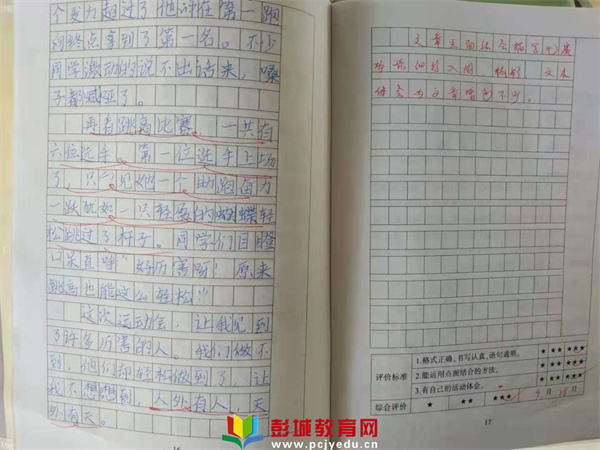 个发力超过了他冲在第一跑
到终点拿到了第一名。不少
同学激动的说不出话来，嗓
子都喊哑了。
再看跳高比赛，一共有
六位选手。第一位选手上场
了，只见她一个助跑奋力
一跃就如一只轻盈的蝴蝶轻
松跳过了杆子。同学们目瞪
口呆直呼“好厉害呀！原来
跳高也能这么轻松！”
这次运动会，让我见到
了许多厉害的人。我们做不
到，他们却轻松做到了，让
我不想想到，人外有人，天
外有天。
16
文章点面结合描写
细致入图，
使全为文章增色不少。
评价标准
1.格式正确，书写认真，语句通顺。
★ ★★ ★★★
2.能运用点面结合的方法。
★ ★★ ★★★
3.有自己的活动体会。
★ ★★ ★★★
综合评价
★ ★★ ★★★
9月28日
17
彭城教育网
www.pcjyedu.cn